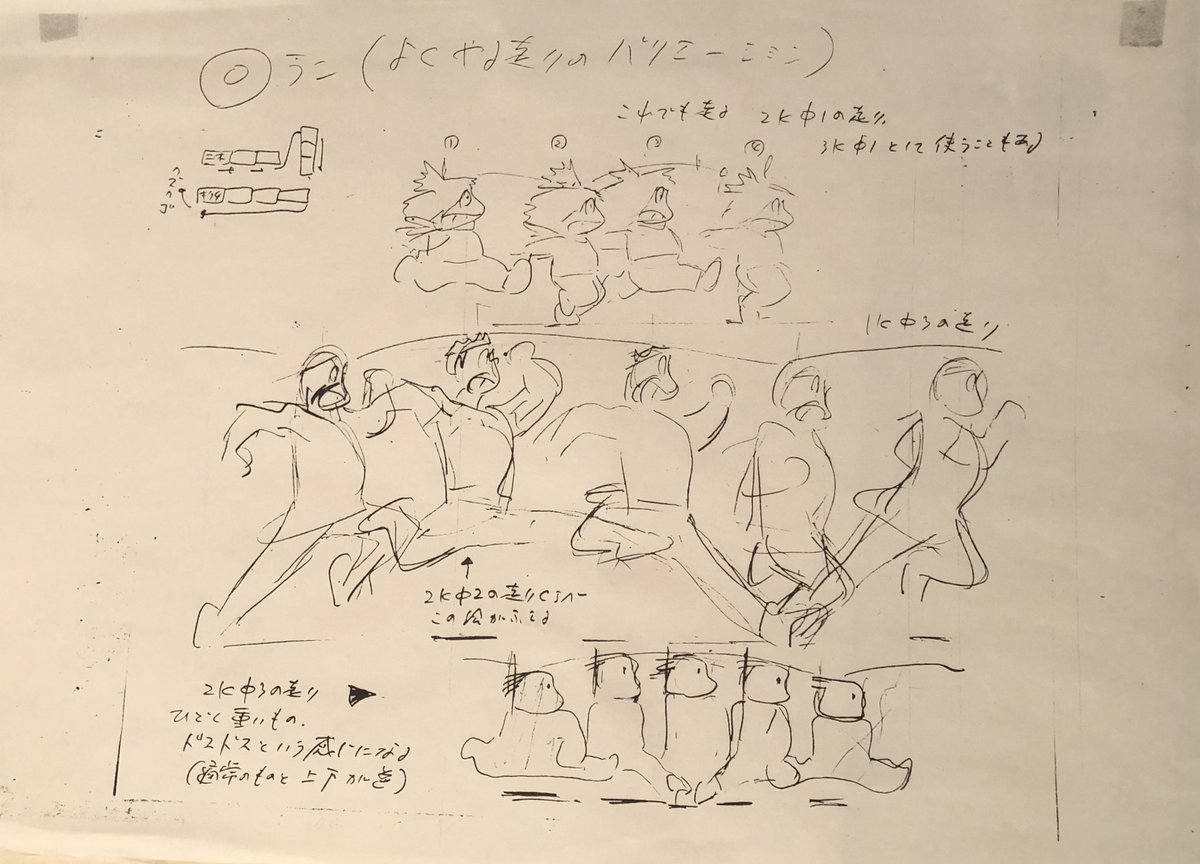 ラン(よくやる走りのバリエーション)
これでも走る 2K中1の走り
3K中1として使うこともある
① ② ③ ④
1K中3の走り
2K中2の走り
この絵がふえる
2K中3の走り
ひどく重いもの.
ドスドスという感じになる
(通常のものと上下が逆)